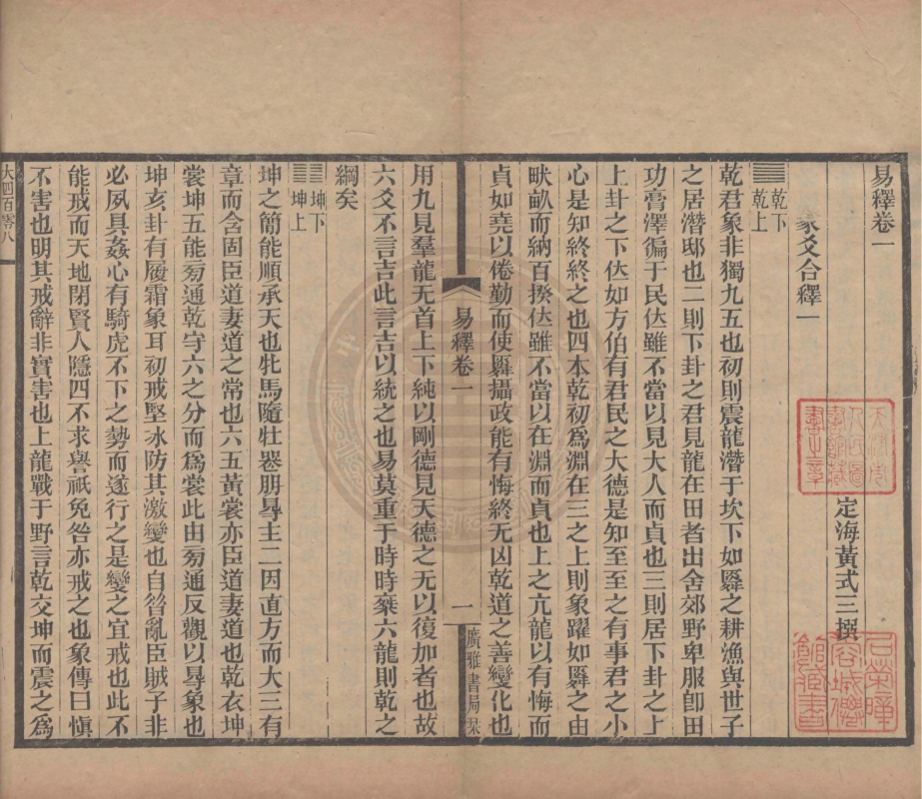 易釋卷一
彖爻合釋一
定海黃式三撰
䷀乾下乾上
乾君象非獨九五也初則震龍潛于坎下如舜之耕漁與世子
之居潛邸也二則下卦之君見龍在田者出舍郊野卑服卽田
功膏澤徧于民㑀雖不當以見大人而貞也三則居下卦之上
上卦之下㑀如方伯有君民之大德是知至至之有事君之小
心是知終終之也四本乾初爲淵在三之上則象躍如舜之由
畎畝而納百揆㑀雖不當以在淵而貞也上之亢龍以有悔而
貞如堯以倦勤而使舜攝政能有悔終无凶乾道之善變化也
易釋卷一
一
廣雅書局栞
用九見羣龍无首上下純以剛德見天德之无以復加者也故
六爻不言吉此言吉以統之也易莫重于時時椉六龍則乾之
綱矣
䷁坤下坤上
坤之簡能順承天也牝馬隨牡喪朋得主二因直方而大三有
章而含固臣道妻道之常也六五黃裳亦臣道妻道也乾衣坤
裳坤五能旁通乾守六之分而爲裳此由旁通反觀以得象也
坤亥卦有履霜象耳初戒堅冰防其激變也自咎亂臣賊子非
必夙具姦心有騎虎不下之勢而遂行之是變之宜戒也此不
能戒而天地閉賢人隱四不求譽祇免咎亦戒之也象傳曰愼
不害也明其戒辭非實害也上龍戰于野言乾交坤而震之爲
大四百零八